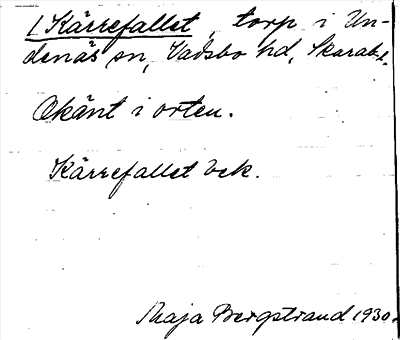 1 Kärrefallet, torp i Un-
denäs sn, Vadsbo hd, Skarab.l.
Okänt i orten.
Kärrefallet Eek.
Maja Bergstrand 1930.